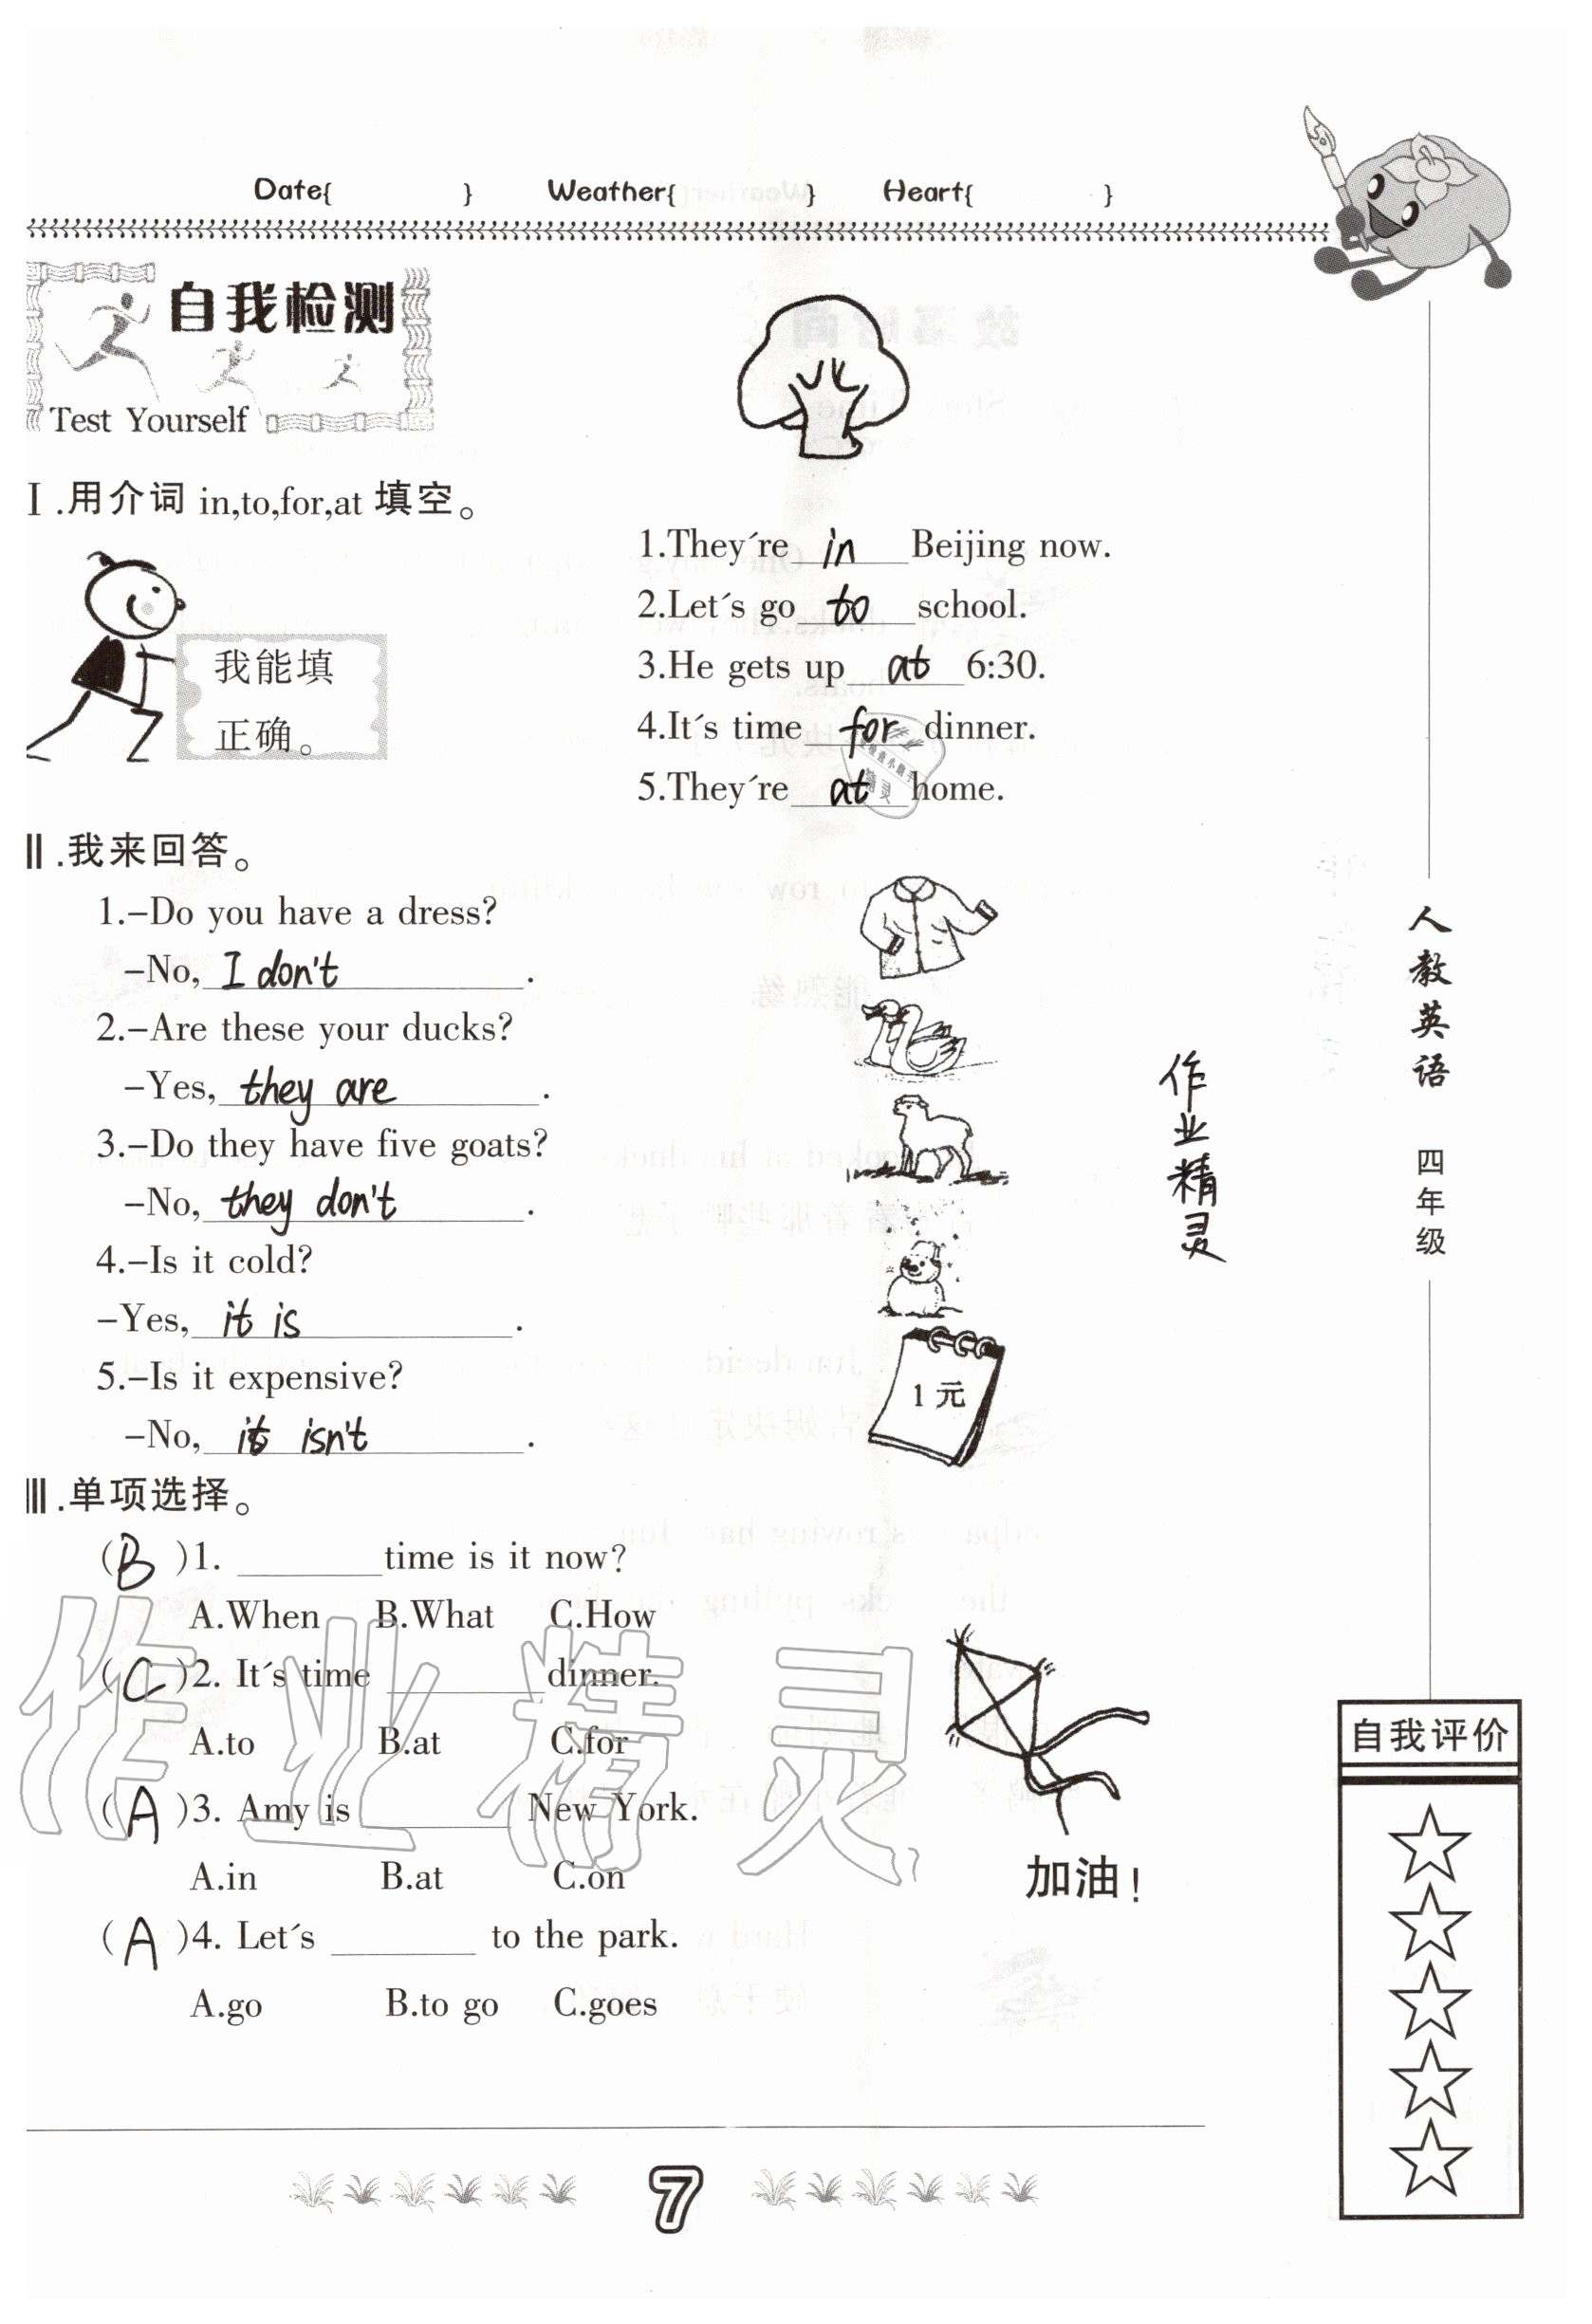 Date{ } Weather{ } Heart{ }
自我检测
Test Yourself
Ⅰ.用介词 in,to,for,at 填空。
我能填
正确。
1.They´re in Beijing now.
2.Let´s go to school.
3.He gets up at 6:30.
4.It´s time for dinner.
5.They´re at home.
Ⅱ.我来回答。
1.–Do you have a dress?
–No, I don't.
2.–Are these your ducks?
–Yes, they are.
3.–Do they have five goats?
–No, they don't.
4.–Is it cold?
–Yes, it is.
5.–Is it expensive?
–No, it isn't.
1元
Ⅲ.单项选择。
(B)1. ______time is it now?
A.When B.What C.How
(C)2. It´s time ______dinner.
A.to B.at C.for
(A)3. Amy is ______ New York.
A.in B.at C.on
(A)4. Let´s ______ to the park.
A.go B.to go C.goes
加油!
作业精灵
作业精灵
人教英语 四年级
自我评价
7